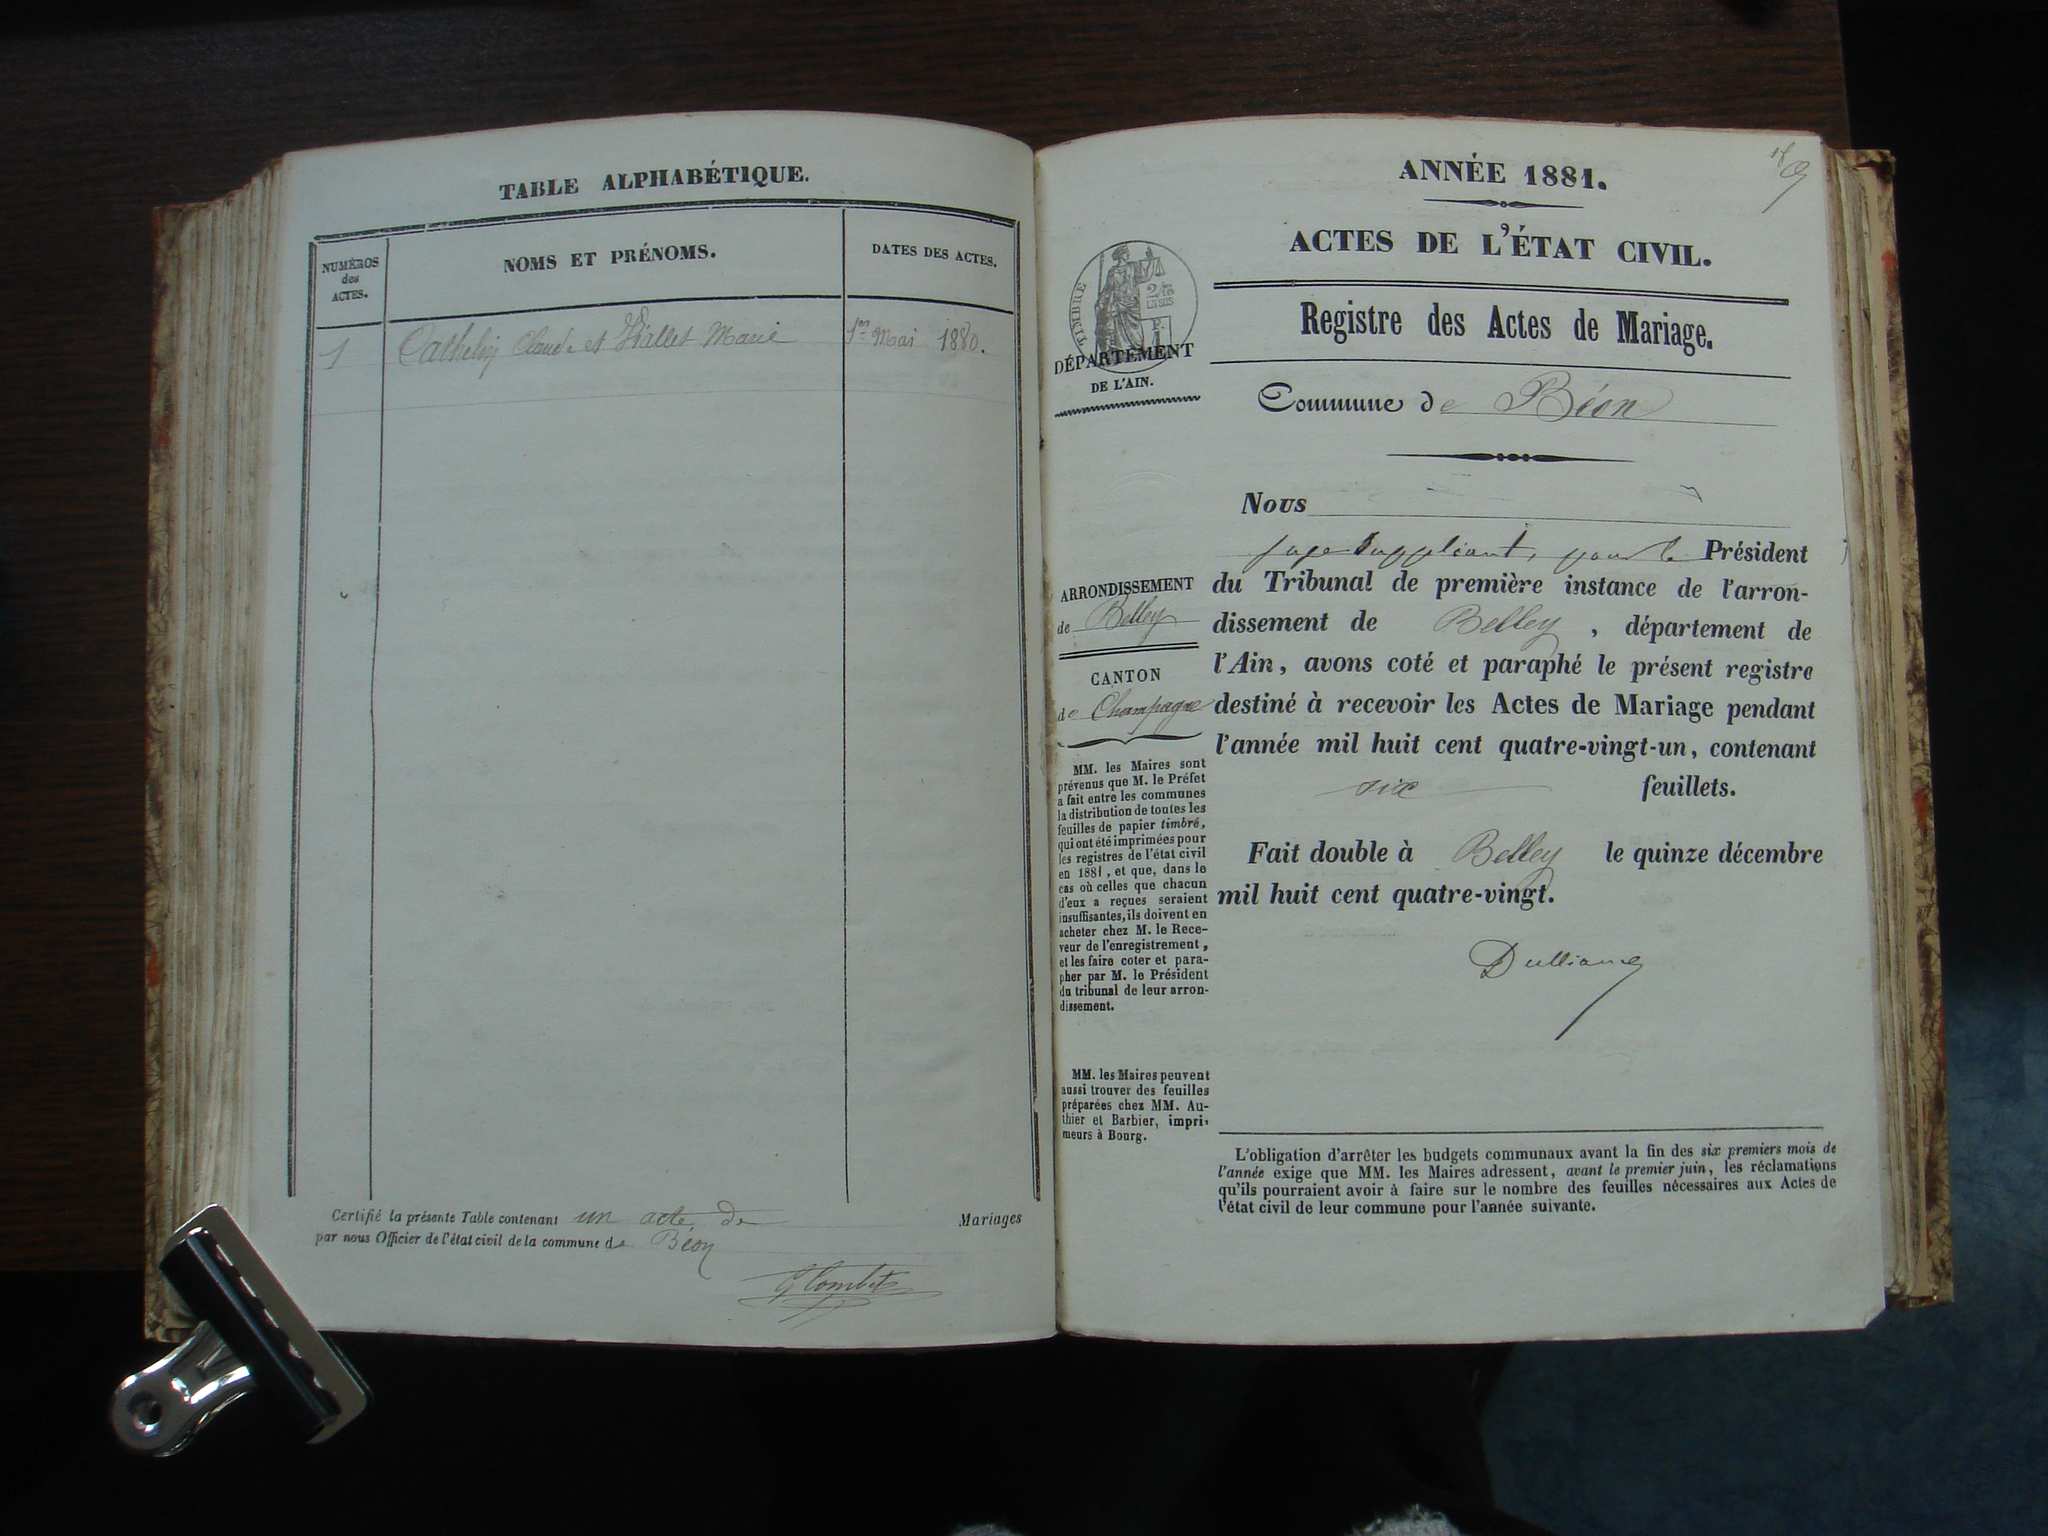 TABLE ALPHABÉTIQUE.
NUMÉROS
des
ACTES.
NOMS ET PRÉNOMS.
DATES DES ACTES.
1 Cathelin Claude et Viallet Marie 1er Mai 1880.
Certifié la présente Table contenant un acte de Mariages
par nous Officier de l'état civil de la commune de Béon
ANNÉE 1881.
ACTES DE L'ÉTAT CIVIL.
Registre des Actes de Mariage.
Commune de Béon
TIMBRE
DÉPARTEMENT
DE L'AIN.
ARRONDISSEMENT
de Belley
CANTON
de Champagne
MM. les Maires sont
prévenus que M. le Préfet
a fait entre les communes
la distribution de toutes les
feuilles de papier timbré,
qui ont été imprimées pour
les registres de l'état civil
en 1881, et que, dans le
cas où celles que chacun
d'eux a reçues seraient
insuffisantes, ils doivent en
acheter chez M. le Rece-
veur de l'enregistrement,
et les faire coter et para-
pher par M. le Président
du tribunal de leur arron-
dissement.
MM. les Maires peuvent
aussi trouver des feuilles
préparées chez MM. Au-
thier et Barbier, impri-
meurs à Bourg.
Nous
juge suppléant, pour le Président
du Tribunal de première instance de l'arron-
dissement de Belley, département de
l'Ain, avons coté et paraphé le présent registre
destiné à recevoir les Actes de Mariage pendant
l'année mil huit cent quatre-vingt-un, contenant
six feuillets.
Fait double à Belley le quinze décembre
mil huit cent quatre-vingt.
L'obligation d'arrêter les budgets communaux avant la fin des six premiers mois de
l'année exige que MM. les Maires adressent, avant le premier juin, les réclamations
qu'ils pourraient avoir à faire sur le nombre des feuilles nécessaires aux Actes de
l'état civil de leur commune pour l'année suivante.